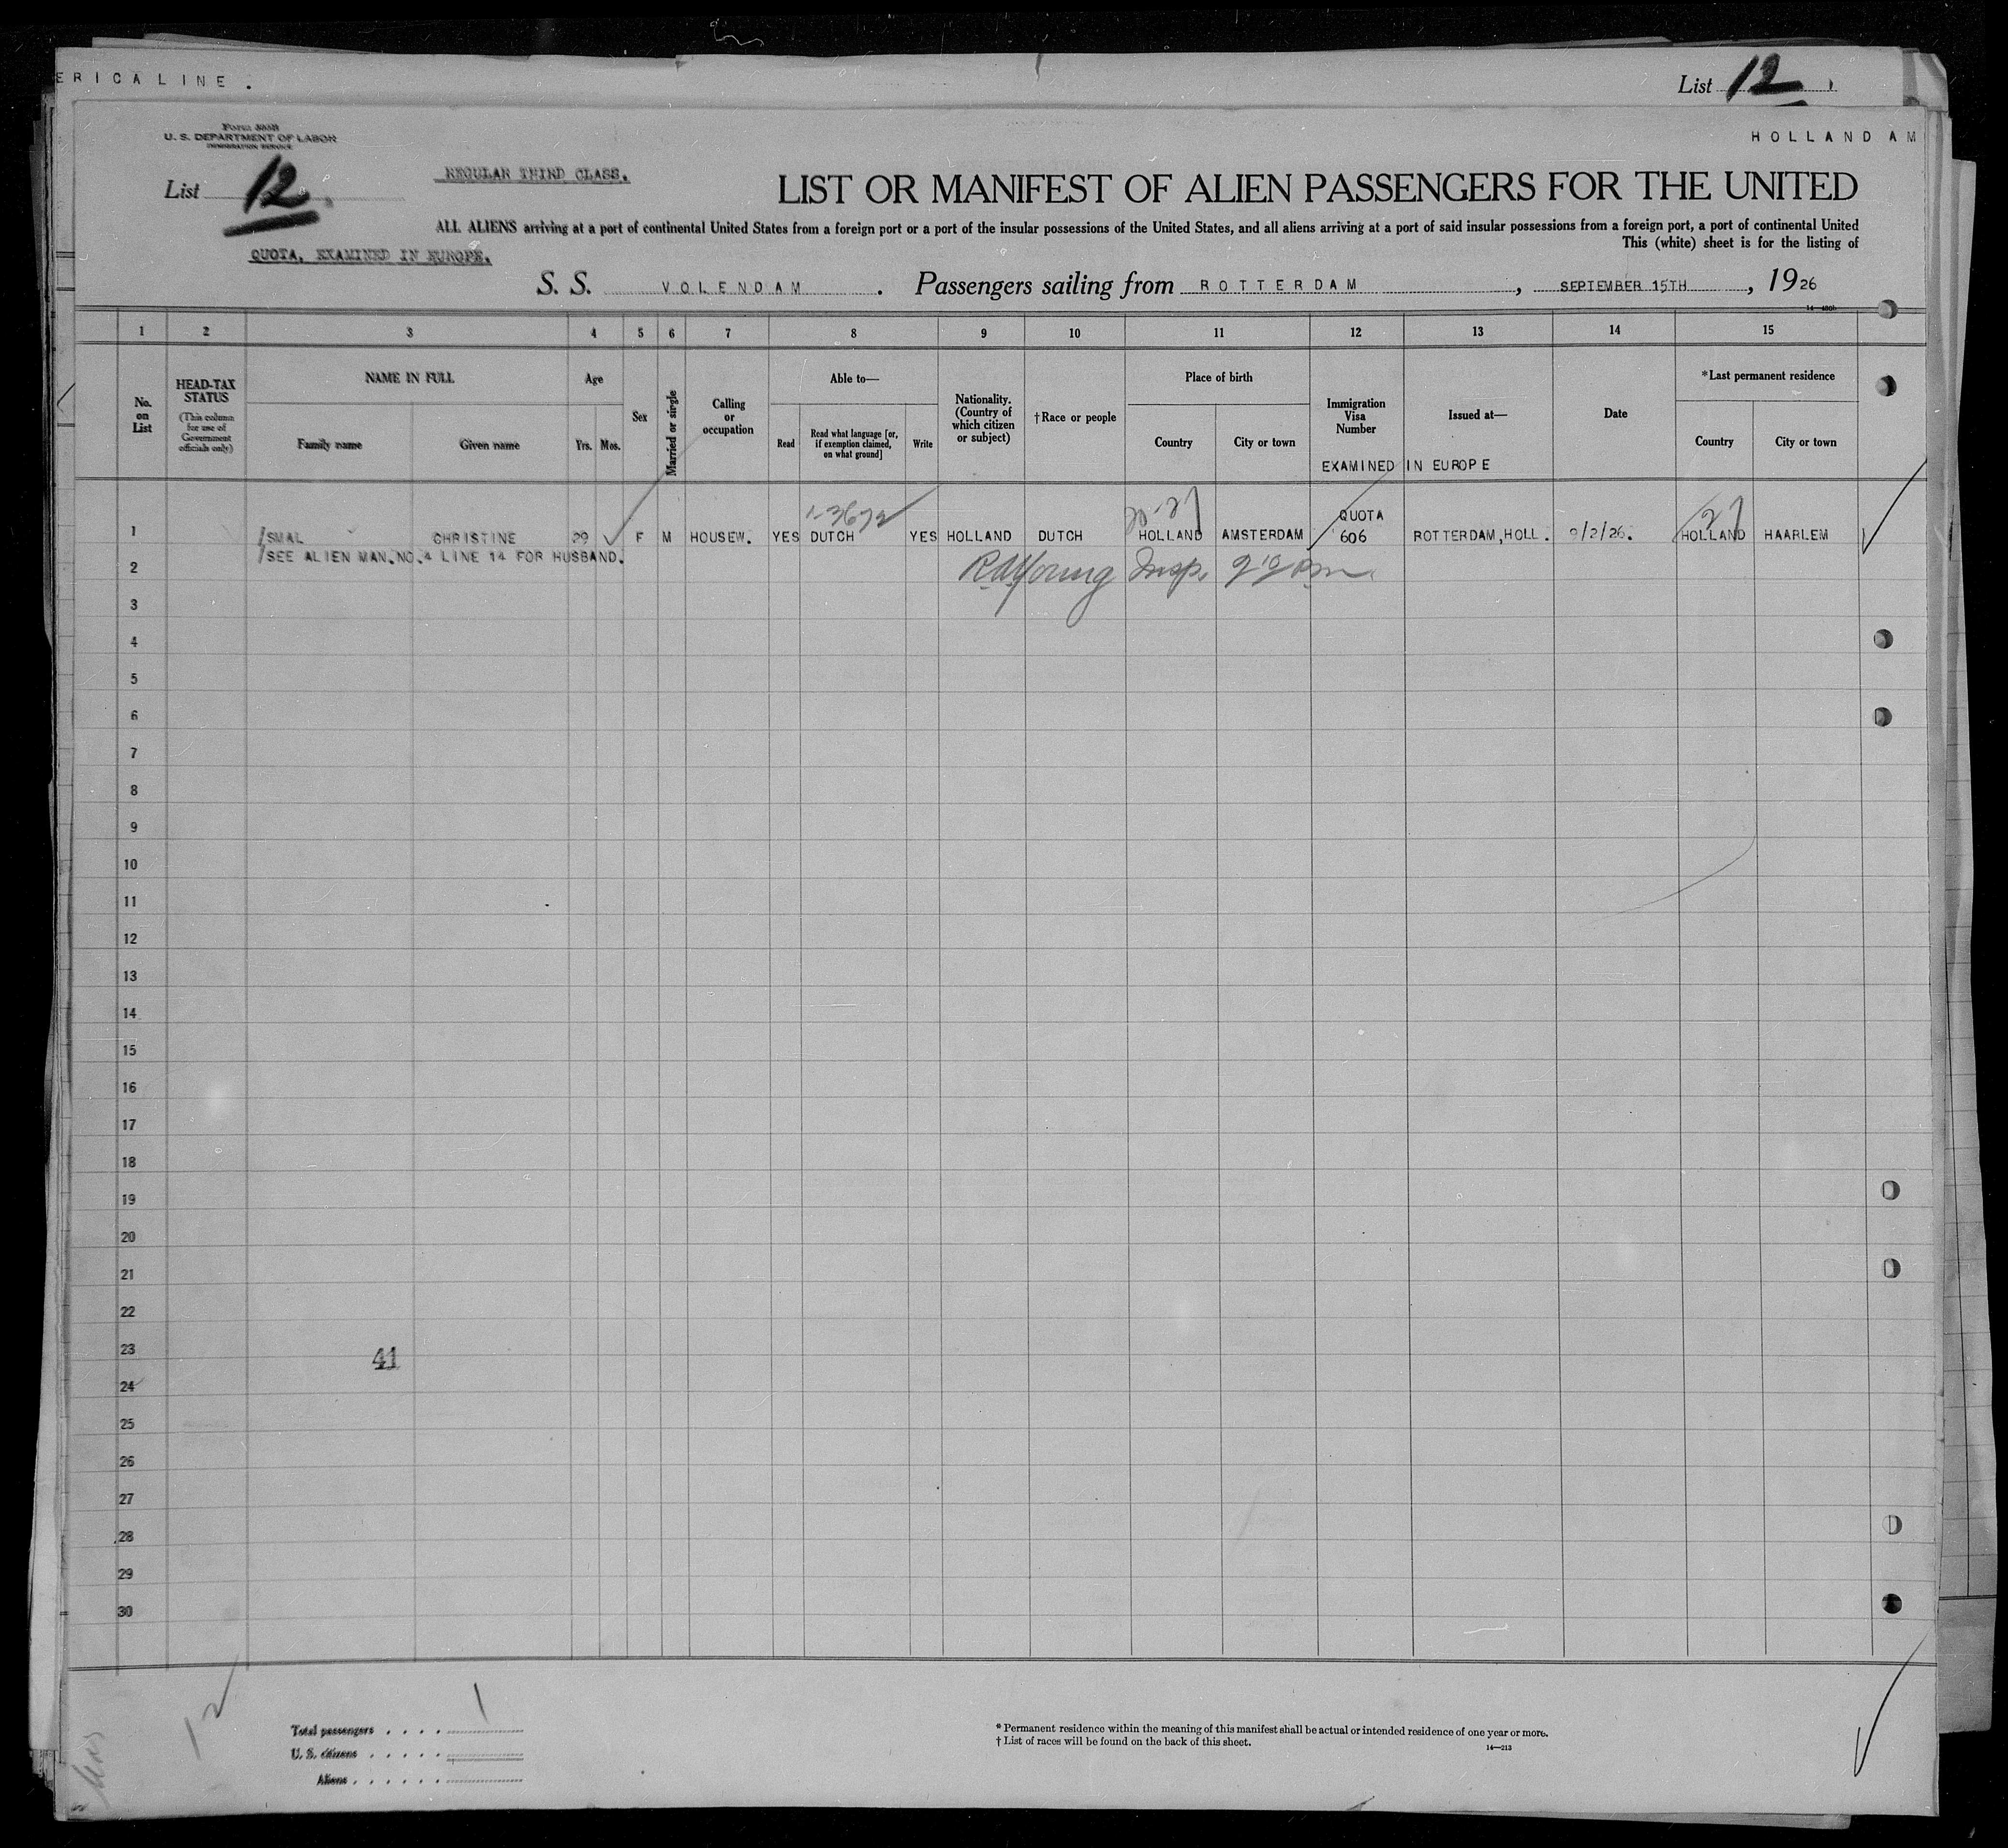 ERICA LINE .
List 12
HOLLAND AM
Form 500B
U. S. DEPARTMENT OF LABOR
IMMIGRATION SERVICE
List 12
REGULAR THIRD CLASS.
LIST OR MANIFEST OF ALIEN PASSENGERS FOR THE UNITED
ALL ALIENS arriving at a port of continental United States from a foreign port or a port of the insular possessions of the United States, and all aliens arriving at a port of said insular possessions from a foreign port, a port of continental United
This (white) sheet is for the listing of
QUOTA, EXAMINED IN EUROPE.
S. S. VOLENDAM . Passengers sailing from ROTTERDAM , SEPTEMBER 15TH , 1926
1 2 3 4 5 6 7 8 9 10 11 12 13 14 15
No. on List
HEAD-TAX STATUS
(This column for use of Government officials only)
NAME IN FULL
Family name Given name
Age
Yrs. Mos.
Sex
Married or single
Calling or occupation
Able to—
Read
Read what language [or, if exemption claimed, on what ground]
Write
Nationality. (Country of which citizen or subject)
†Race or people
Place of birth
Country City or town
Immigration Visa Number
Issued at—
EXAMINED IN EUROPE
Date
*Last permanent residence
Country City or town
1-3672
QUOTA
1 SMAL CHRISTINE 29 F M HOUSEW. YES DUTCH YES HOLLAND DUTCH HOLLAND AMSTERDAM 606 ROTTERDAM, HOLL. 9/2/26. HOLLAND HAARLEM
SEE ALIEN MAN.NO.4 LINE 14 FOR HUSBAND.
2
Young Insp.
3
4
5
6
7
8
9
10
11
12
13
14
15
16
17
18
19
20
21
22
23
41
24
25
26
27
28
29
30
12
Total passengers . . . . 1
U. S. citizens . . . . .
Aliens . . . . . .
* Permanent residence within the meaning of this manifest shall be actual or intended residence of one year or more.
† List of races will be found on the back of this sheet.
14—213